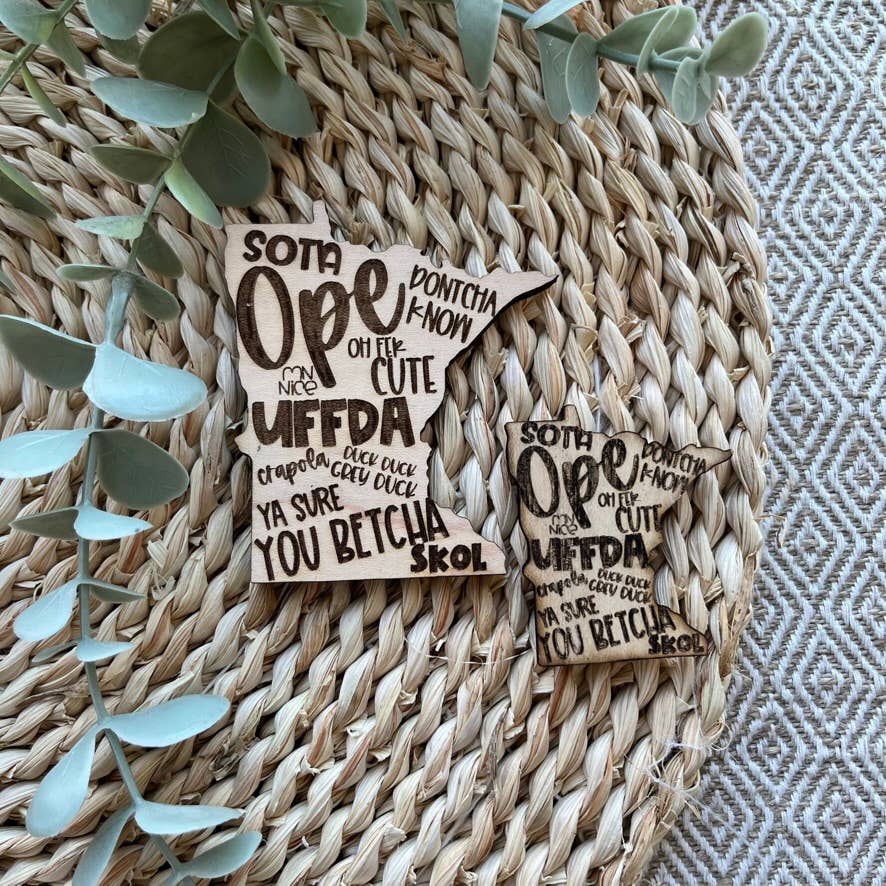 SOTA
Ope
DONTCHA
KNOW
OH FER
CUTE
MN
NICE
UFFDA
crapola
DUCK DUCK
GREY DUCK
YA SURE
YOU BETCHA
SKOL
SOTA
Ope
DONTCHA
KNOW
OH FER
CUTE
MN
NICE
UFFDA
crapola
DUCK DUCK
GREY DUCK
YA SURE
YOU BETCHA
SKOL